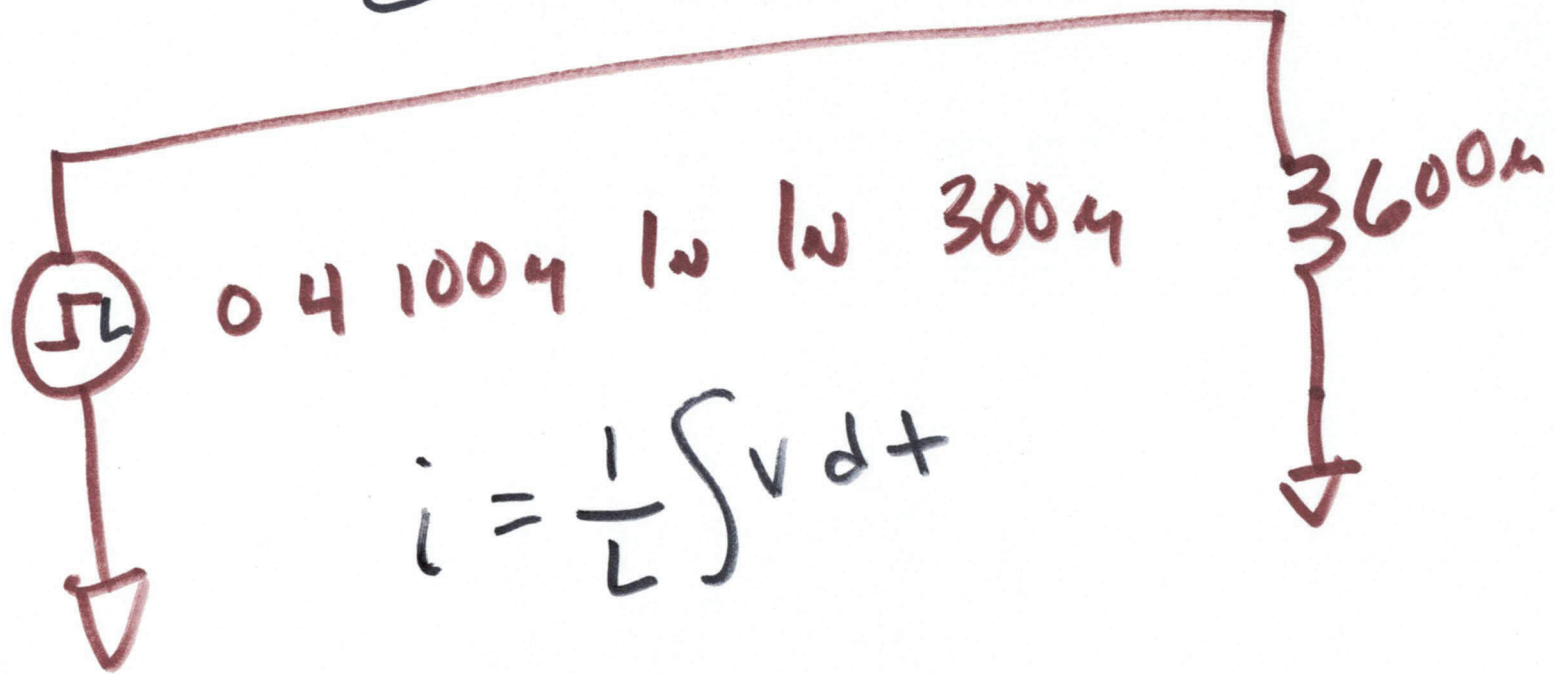 0 4 100u 1n 1n 300u
600u
i = 1/L ∫ v dt